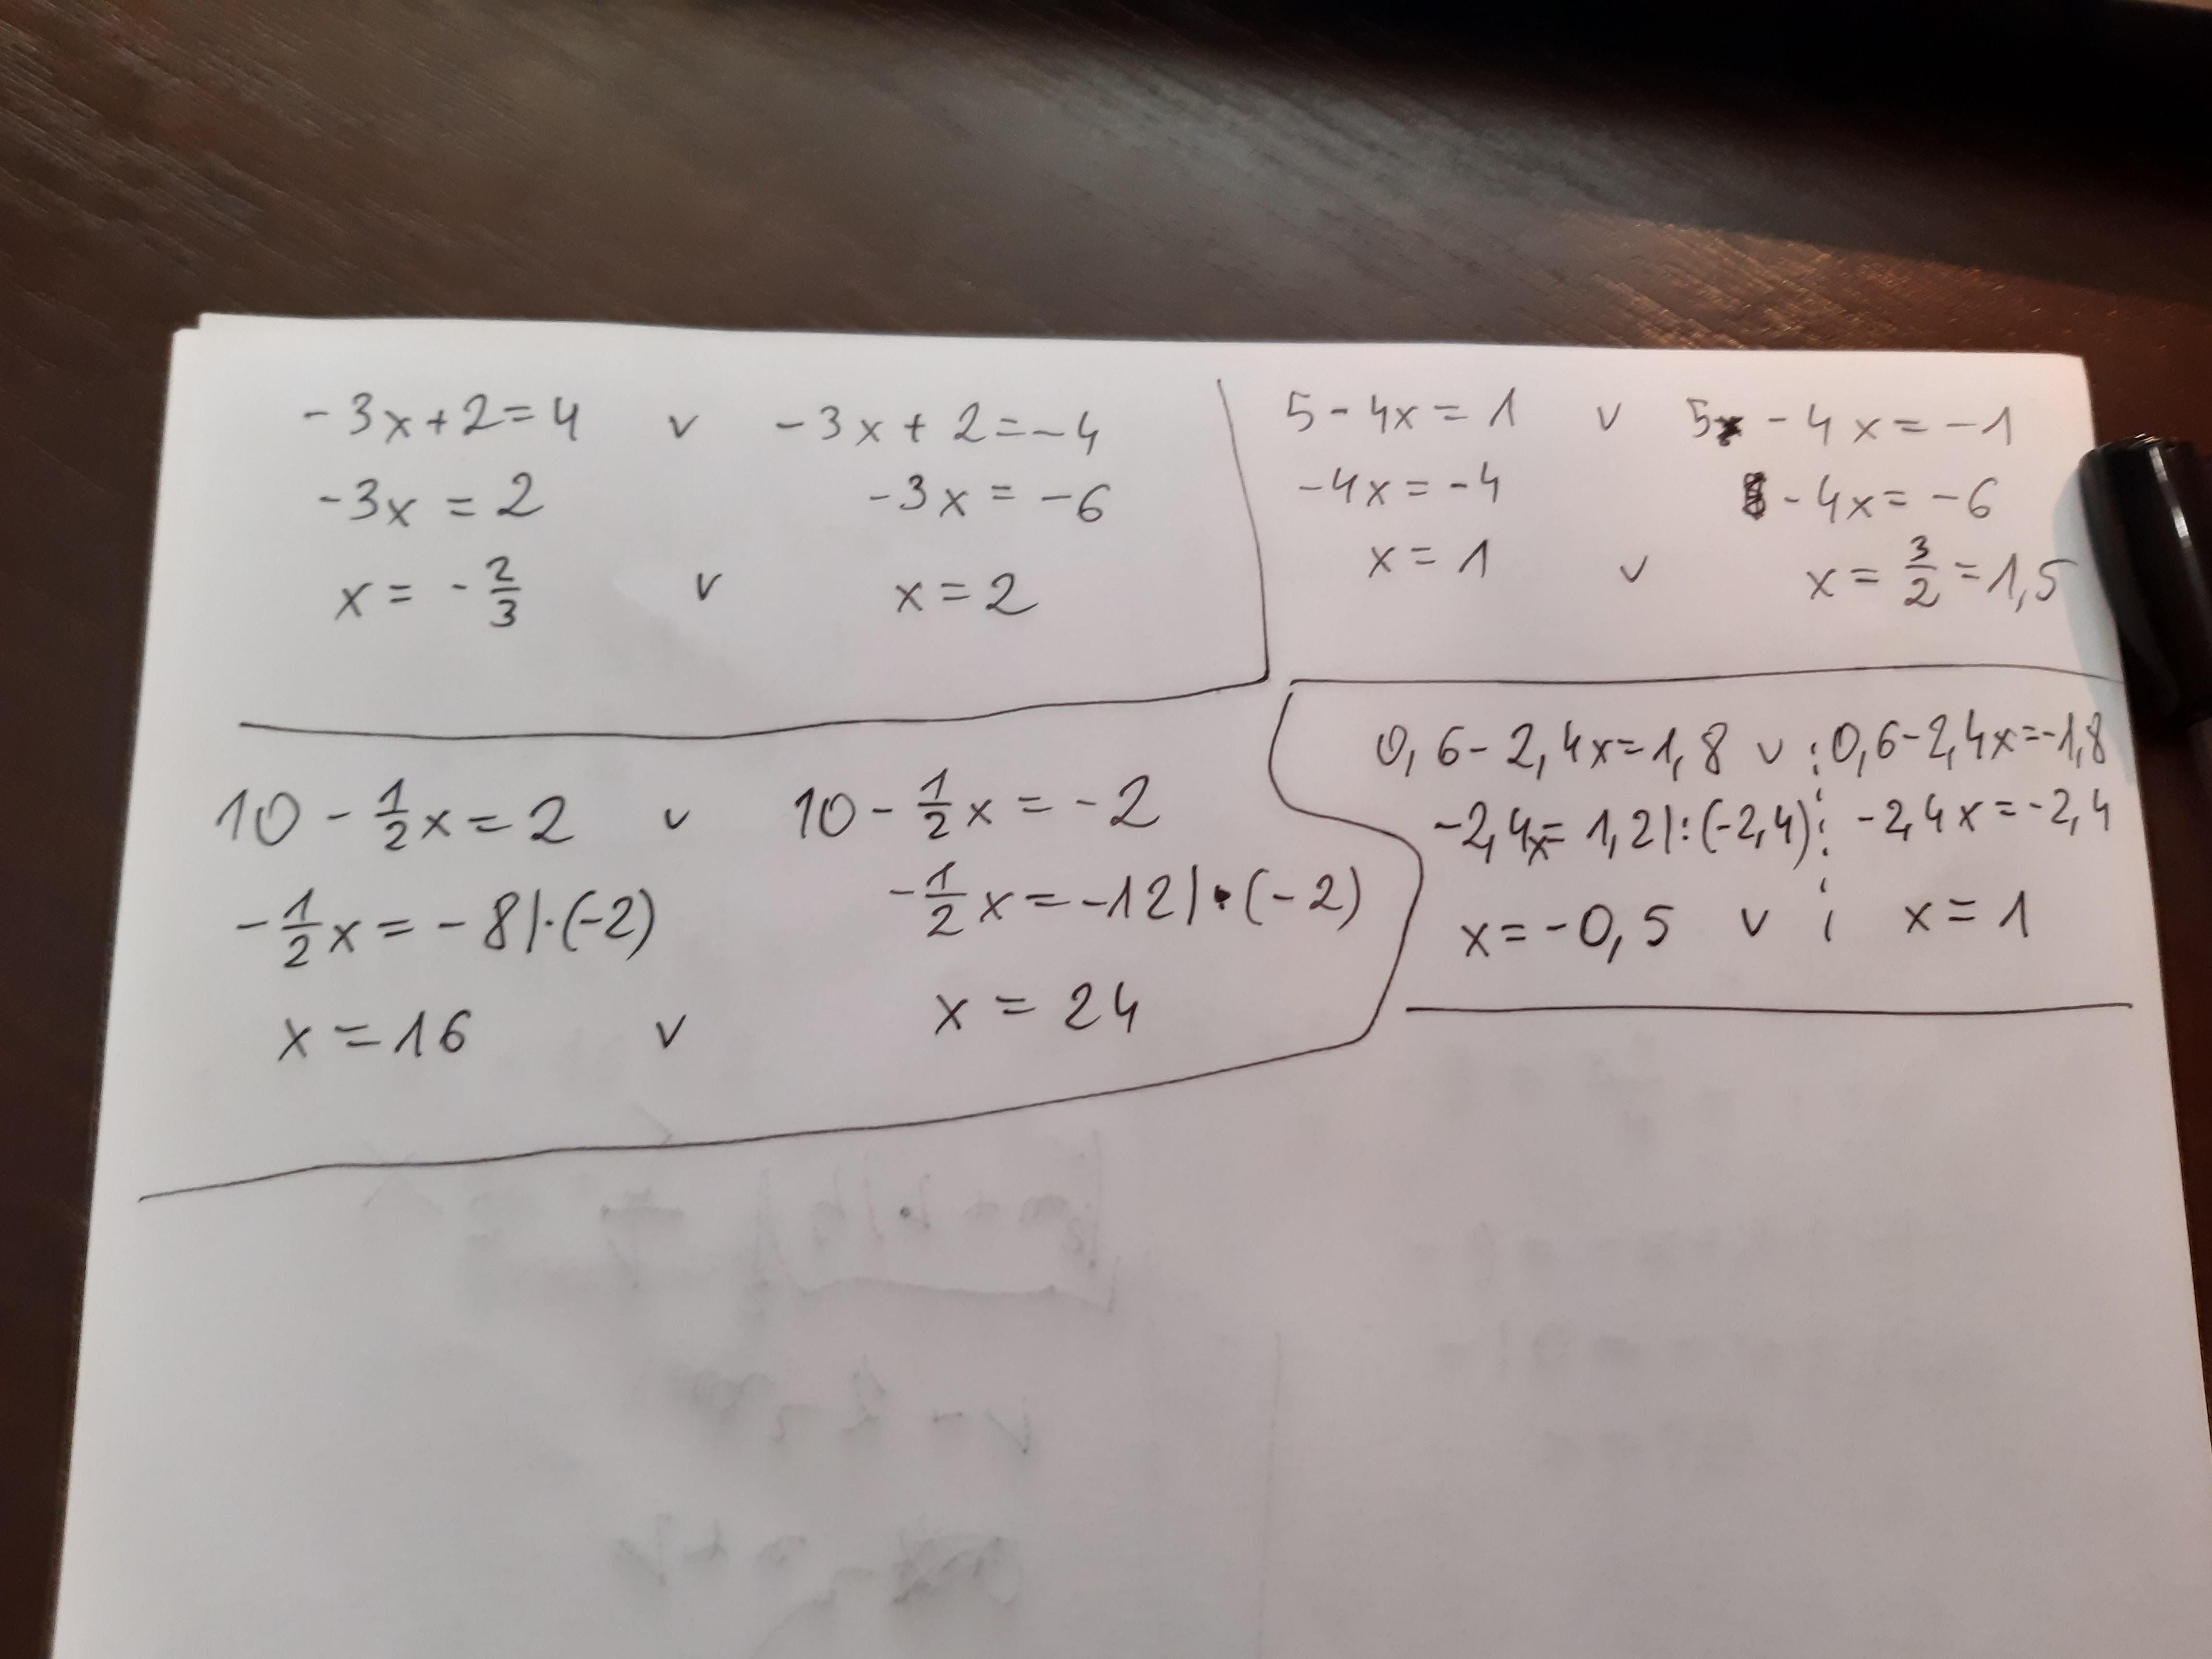 -3x+2=4 v -3x+2=-4
-3x=2 -3x=-6
x=-2/3 v x=2
5-4x=1 v 5-4x=-1
-4x=-4 -4x=-6
x=1 v x=3/2=1,5
10-1/2x=2 v 10-1/2x=-2
-1/2x=-8|·(-2) -1/2x=-12|·(-2)
x=16 v x=24
0,6-2,4x=1,8 v 0,6-2,4x=-1,8
-2,4x=1,2|:(-2,4) -2,4x=-2,4
x=-0,5 v x=1